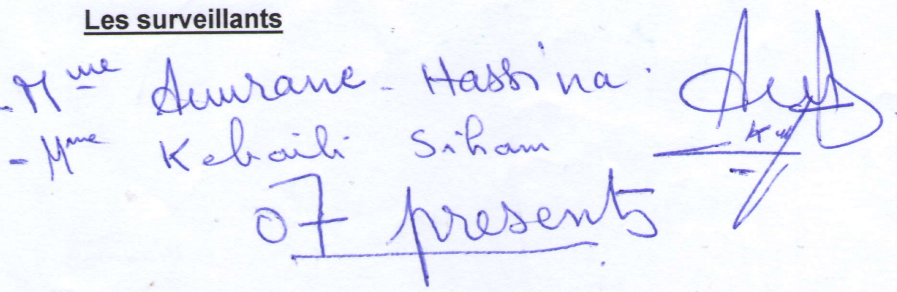 Les surveillants
- Mme Amrane - Hassina.
- Mme Kebaili Siham
07 presents